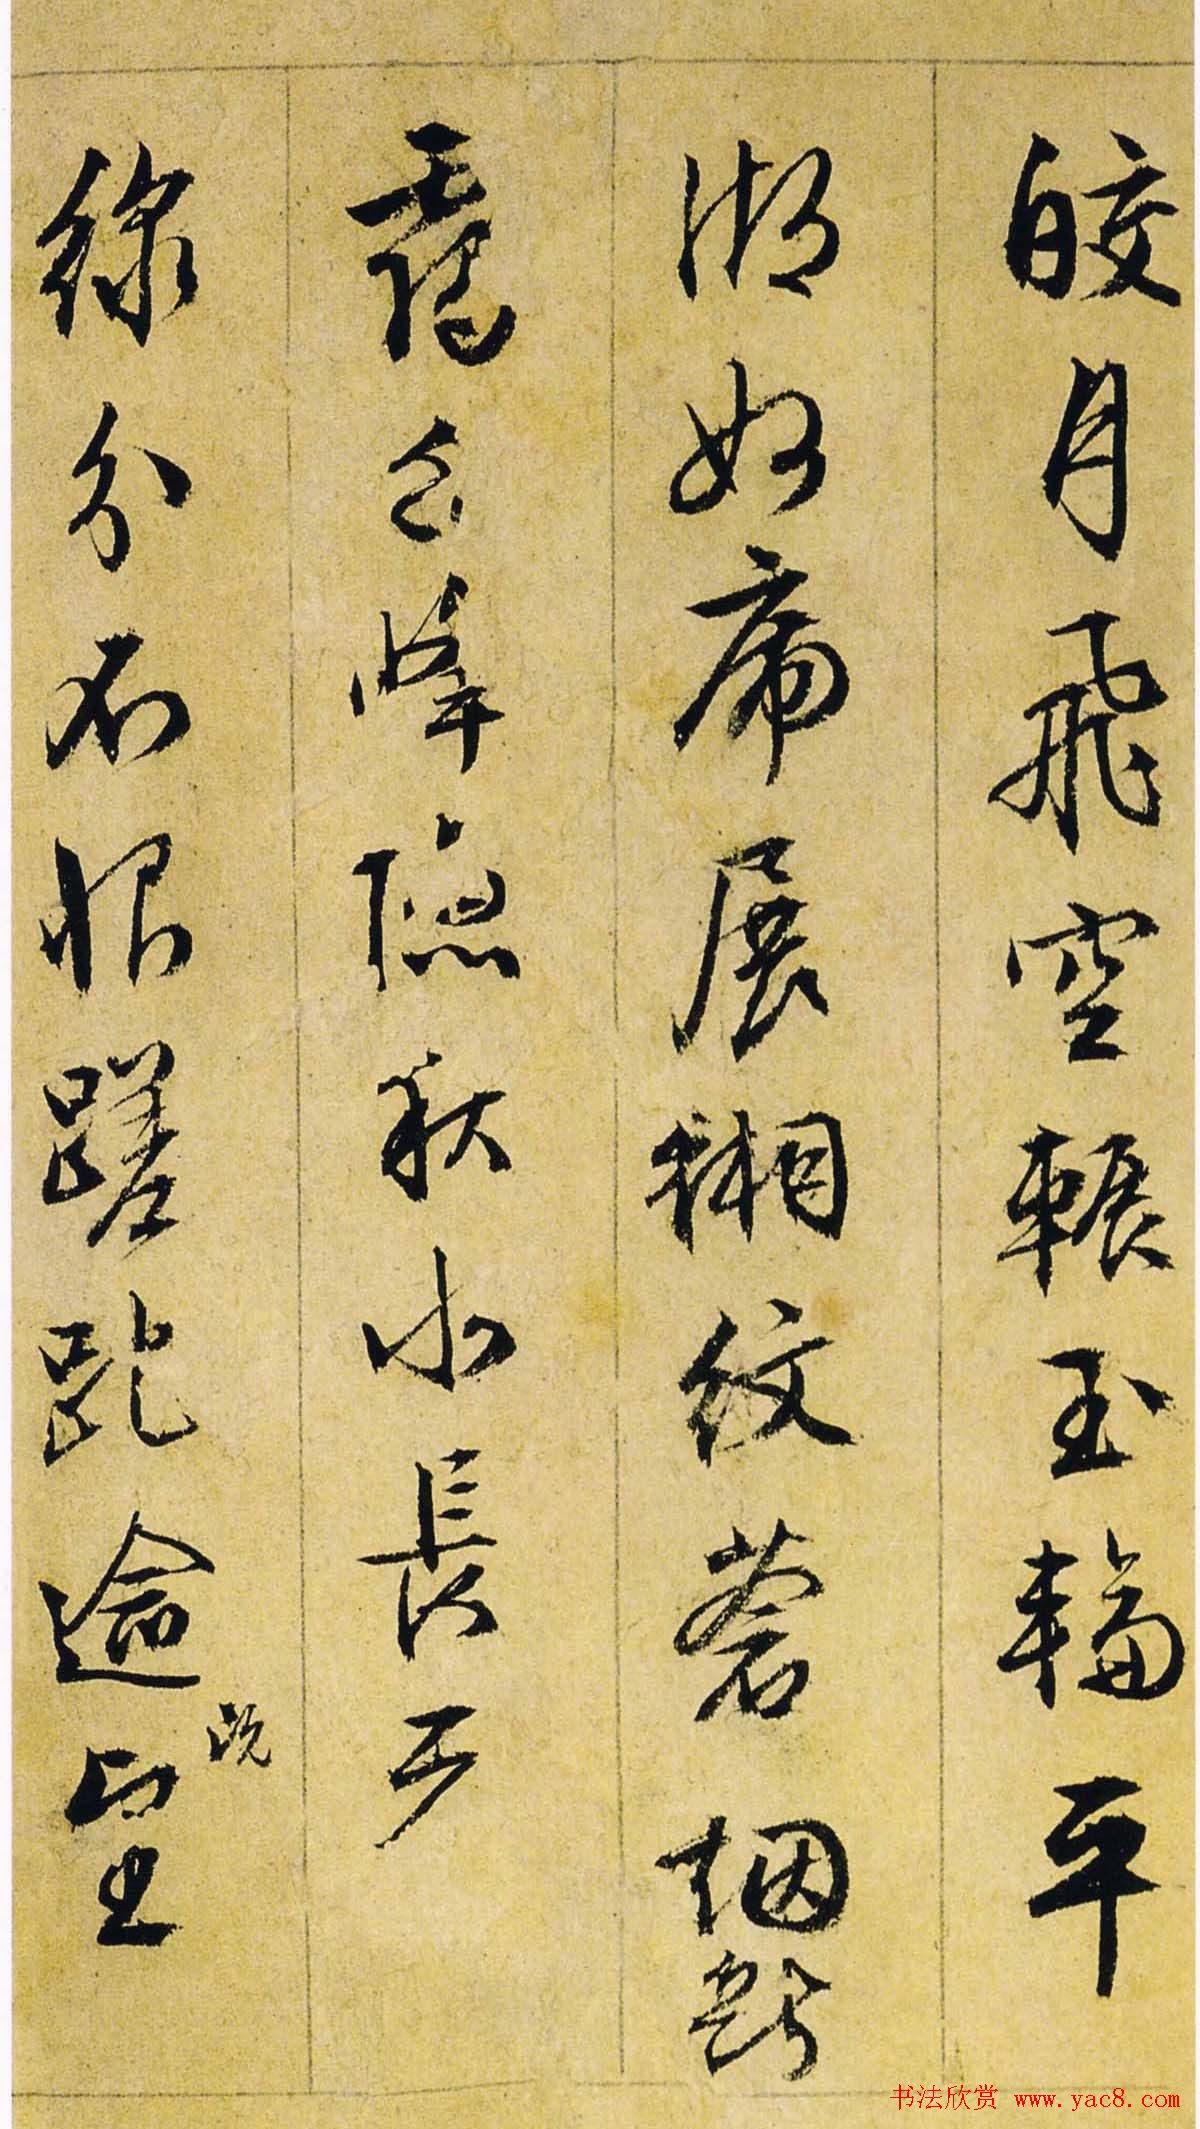 皎月飛空輾玉輪平
湖如席展緗紋蒼烟斷
霞峰隱秋水長天
緣分不恨蹉跎逾望
既
书法欣赏 www.yac8.com